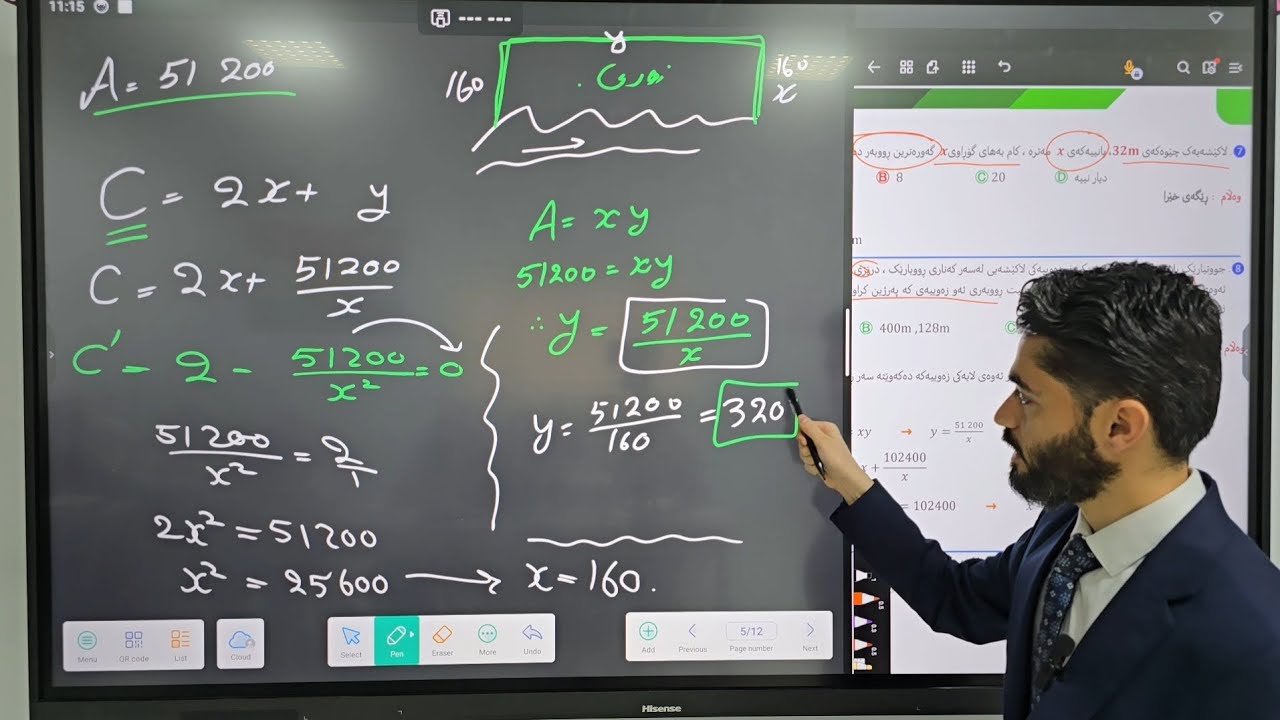 11:15
A = 51 200
y
160
160
x
C = 2x + y
C = 2x + 51200/x
C' = 2 - 51200/x² = 0
51200/x² = 2/1
2x² = 51200
x² = 25600 → x = 160.
A = xy
51200 = xy
∴ y = 51200/x
y = 51200/160 = 320
7 لاکێشەیەک چێوەکەی 32m، پانییەکەی x مەترە ، کام بەهای گۆڕاوی x گەورەترین ڕووبەر
B 8
C 20
D دیار نییە
وەڵام : ڕێگەی خێرا
m
8 جووتیارێک
لاکێشەیی لەسەر کەناری ڕووبارێک ، درێژی
ڕووبەری ئەو زەوییەی کە پەرژین کراو
B 400m ,128m
C
وەڵام
ئەوەی لایەکی زەوییەکە دەکەوێتە سەر
xy → y = 51 200/x
x + 102400/x
= 102400 → x
Menu
QR code
List
Cloud
Select
Pen
Eraser
More
Undo
Add
Previous
5/12
Page number
Next
Hisense